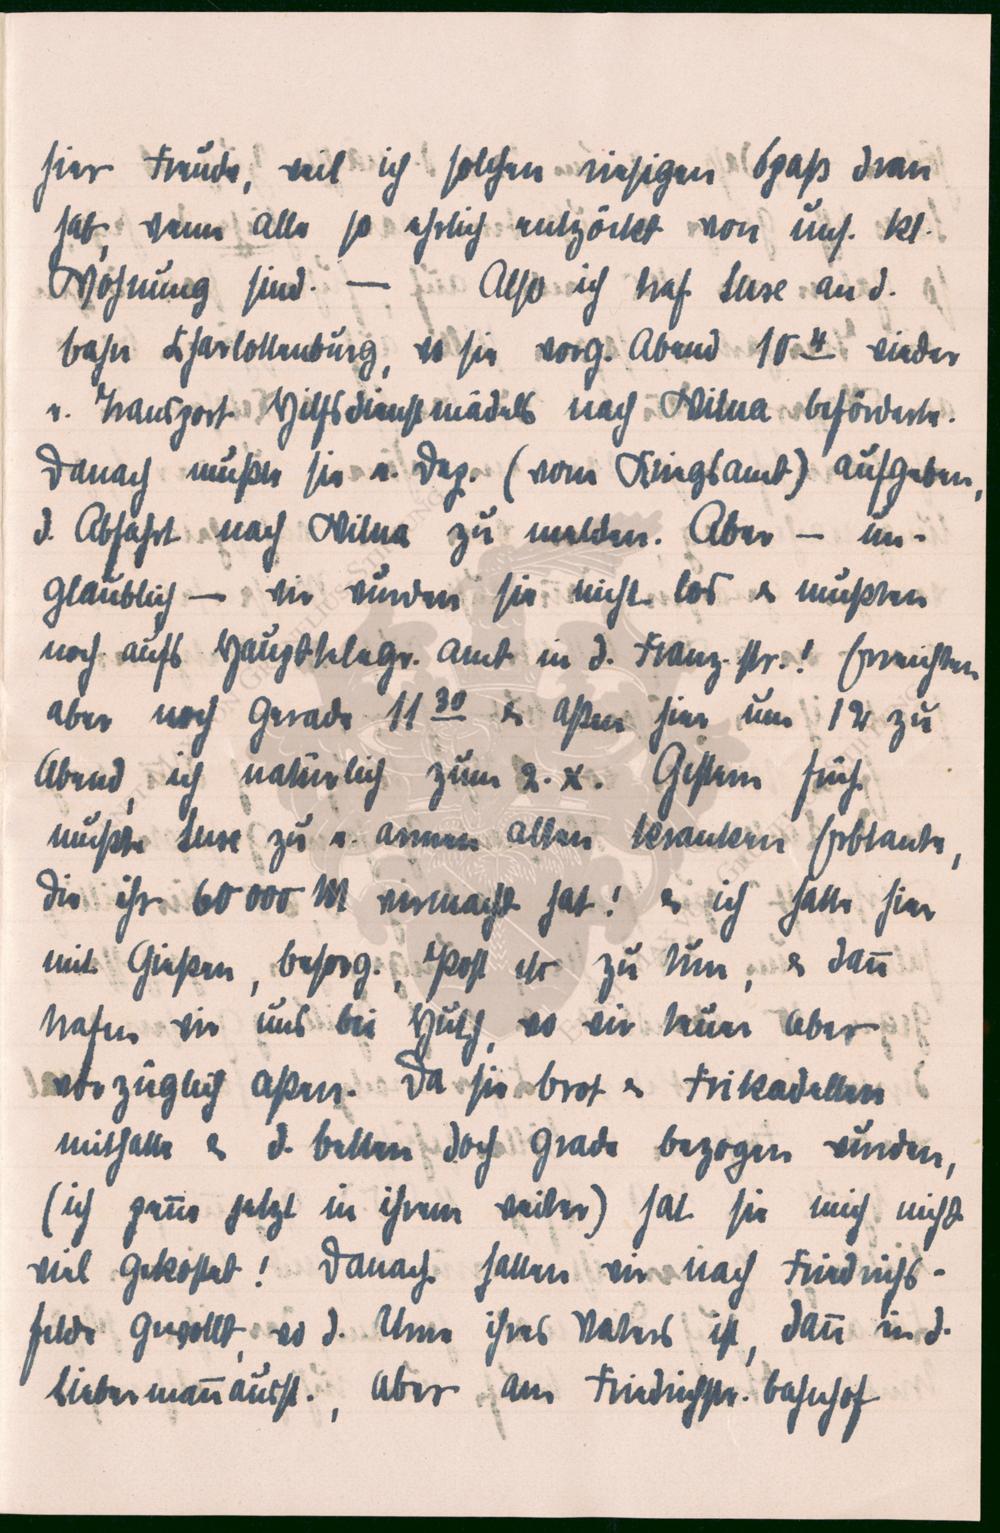 hier Freude, weil ich solchen riesigen Spaß dran
hab, wenn alle so ehrlich entzückt von uns. kl.
Wohnung sind. — Also ich traf Luse an d.
bahn Charlottenburg, wo sie vorg. Abend 10 4 wieder
e. Transport Hilfsdienstmädels nach Wilna beförderte.
Danach mußte sie e. Dep. (vom Kriegsamt) aufgeben,
d. Abfahrt nach Wilna zu melden. Aber — un-
glaublich — wir wurden sie nicht los & mußten
noch aufs Haupttelegr. amt in d. Franz. str.! Erreichten
aber noch gerade 11 30 & aßen hier um 12 zu
Abend, ich natürlich zum 2. x. Gestern früh
mußte Luse zu e. armen alten kranken Erbtante,
die ihr 60 000 M vermacht hat! & ich hatte hier
mit Gießen, besorg., Post etc zu tun, & dan̄
trafen wir uns bei Huth, wo wir teuer aber
vorzüglich aßen. Da sie brot & Frikadellen
mithatte & d. betten doch grade bezogen wurden,
(ich pen̄e jetzt in ihrem weiter) hat sie mich nicht
viel gekostet! Danach hatten wir nach Friedrichs-
felde gewollt, wo d. Urne ihres Vaters ist, dan̄ in d.
Lieberman̄ausst., aber am Friedrichstr. bahnhof